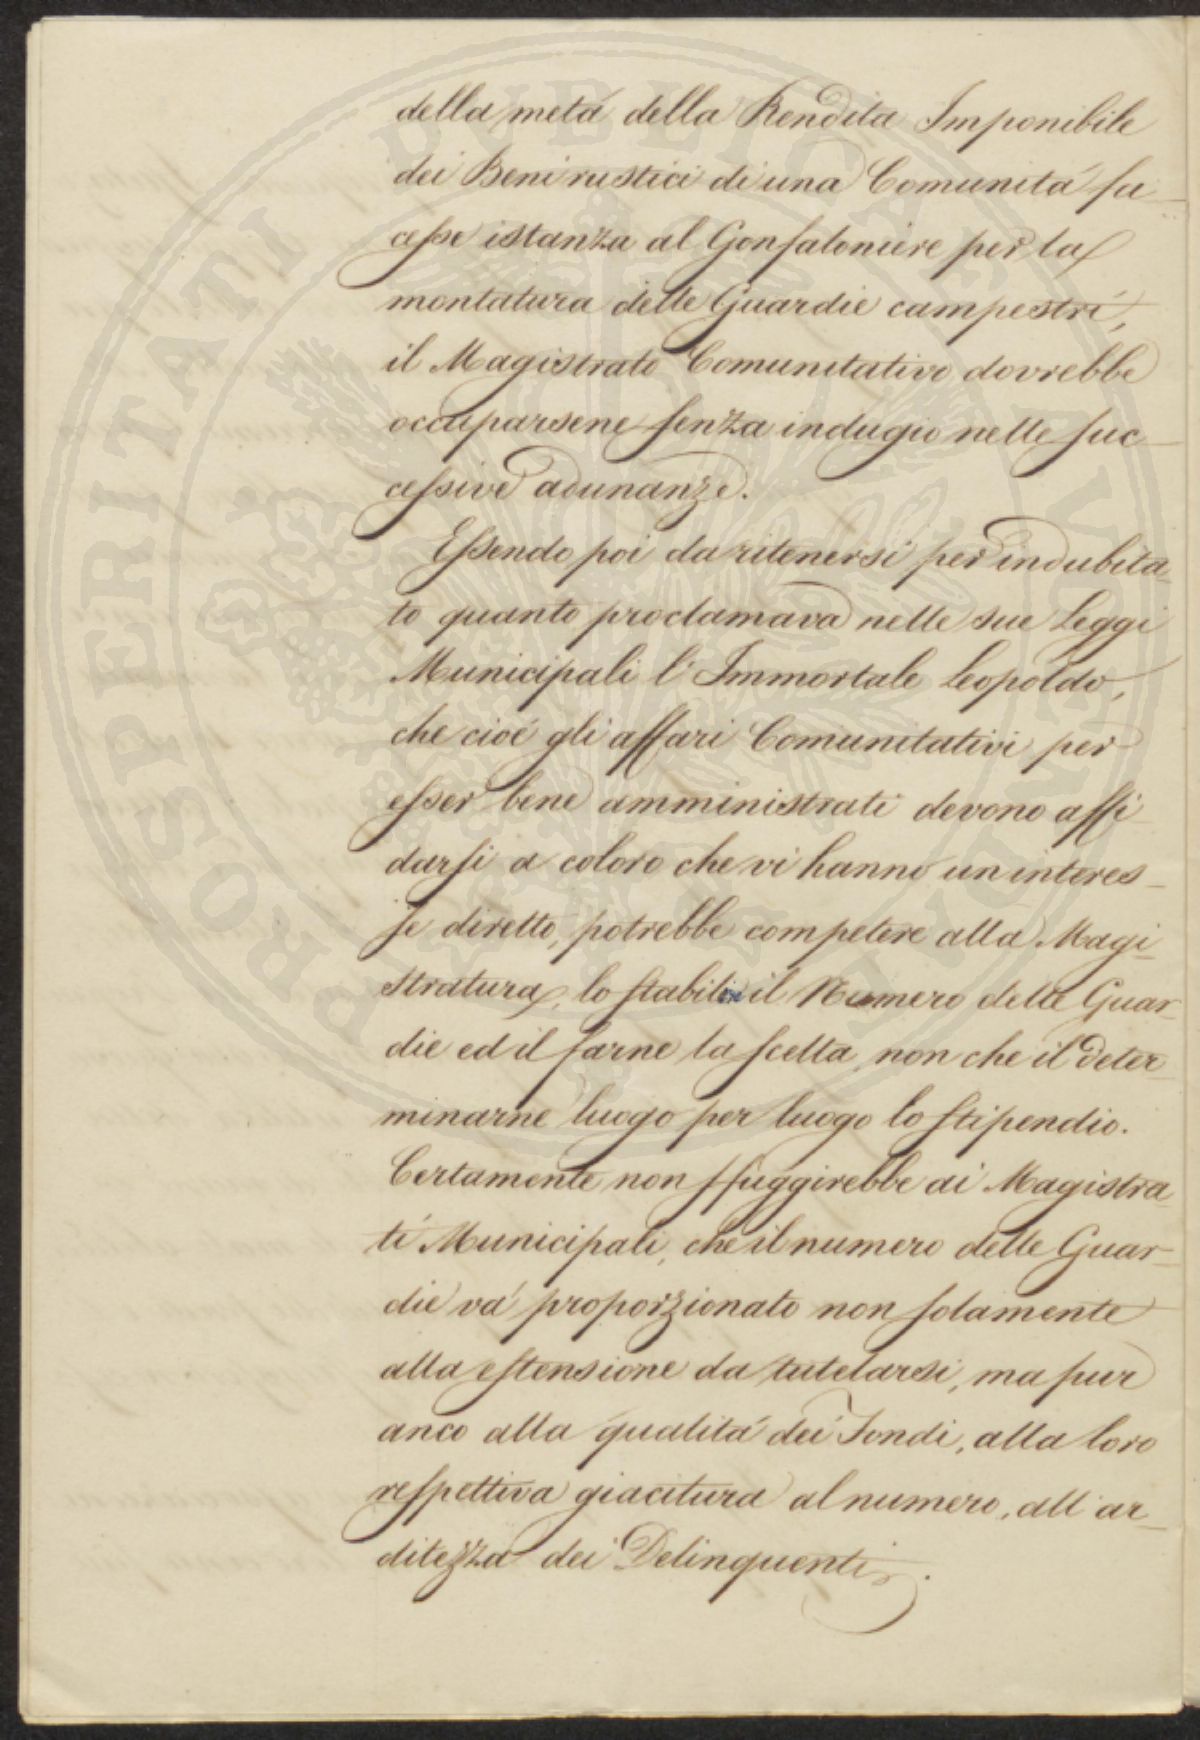 della metá della Rendita Imponibile
dei Beni rustici di una Comunitá fa-
cesse istanza al Gonfaloniere per la
montatura delle Guardie campestri,
il Magistrato Comunitativo dovrebbe
occuparsene senza indugio nelle suc-
cessive adunanze.
Essendo poi da ritenersi per indubita-
to quanto proclamava nelle sue Leggi
Municipali l'Immortale Leopoldo,
che cioé gli affari Comunitativi per
esser bene amministrati devono affi-
darsi a coloro che vi hanno un interes-
se diretto, potrebbe competere alla Magi-
stratura, lo stabilire il Numero delle Guar-
die ed il farne la scelta, non che il deter-
minarne luogo per luogo lo stipendio.
Certamente non sfuggirebbe ai Magistra-
ti Municipali, che il numero delle Guar-
die vá proporzionato non solamente
alla estensione da tutelarsi, ma pur
anco alla qualitá dei Fondi, alla loro
respettiva giacitura al numero, all'ar-
ditezza dei Delinquenti.
PROSPERITATI PUBLICAE